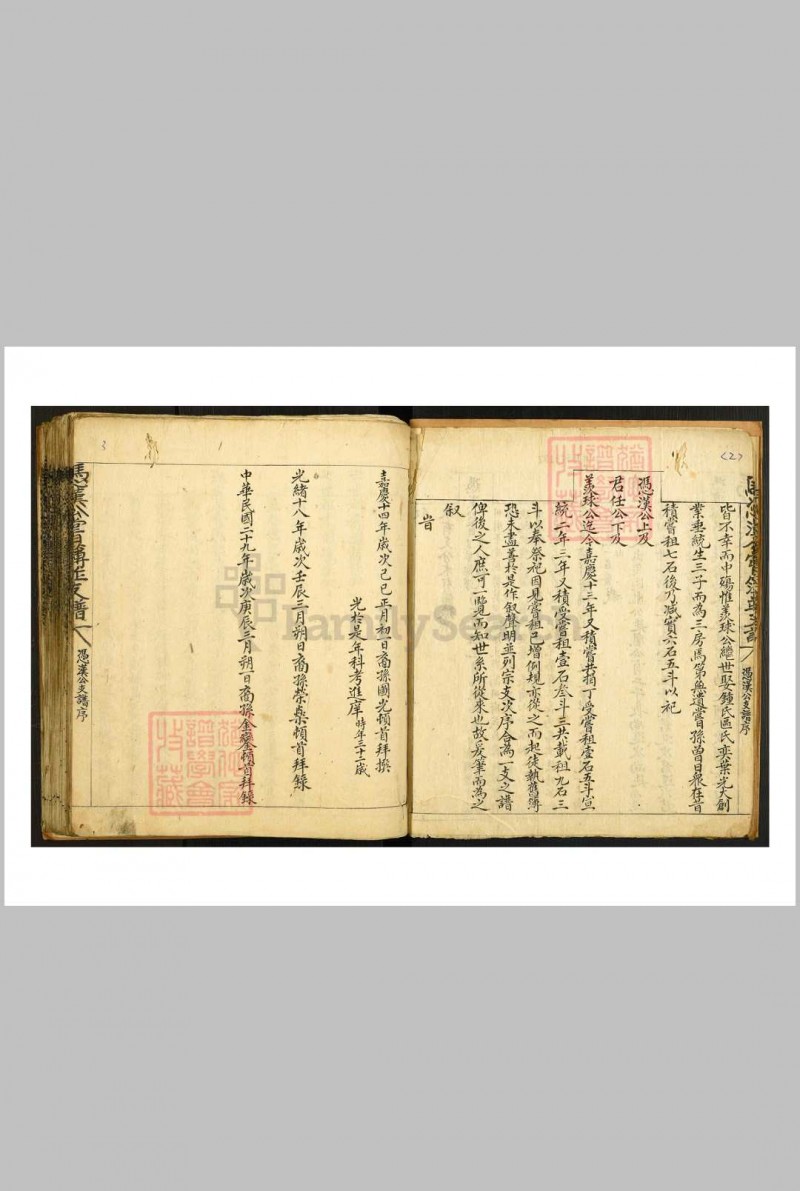 (2)
憑漢公支譜序
皆不幸而中殤惟美球公繼世娶鍾氏區氏奕葉光大創
業垂統生三子而為三房焉第無遺嘗日孫曾日衆存昔
積嘗租七石後乃減實六石五斗以祀
憑漢公上及
君任公下及
美球公迄今嘉慶十三年又積嘗共捐丁受嘗租壹石五斗宣
統一年三年又積受嘗租壹石叁斗三共載租九石三
斗以奉祭祀因見嘗租已增例規亦從之而起徒執舊簿
恐未盡善於是作叙聲明並列宗支次序合為一支之譜
俾後之人庶可一覽而知世系所從來也故爰筆而為之
叙
旹
嘉慶十四年歲次己巳正月初一日裔孫國光頓首拜撰
光於是年科考進庠 時年三十二歲
光緒十八年歲次壬辰三月朔日裔孫榮燊頓首拜錄
中華民國二十九年歲次庚辰三月朔一日裔孫金鑾頓首拜錄
憑漢公支譜序
3
1
譜學會
特藏
譜學會
特藏
FamilySearch